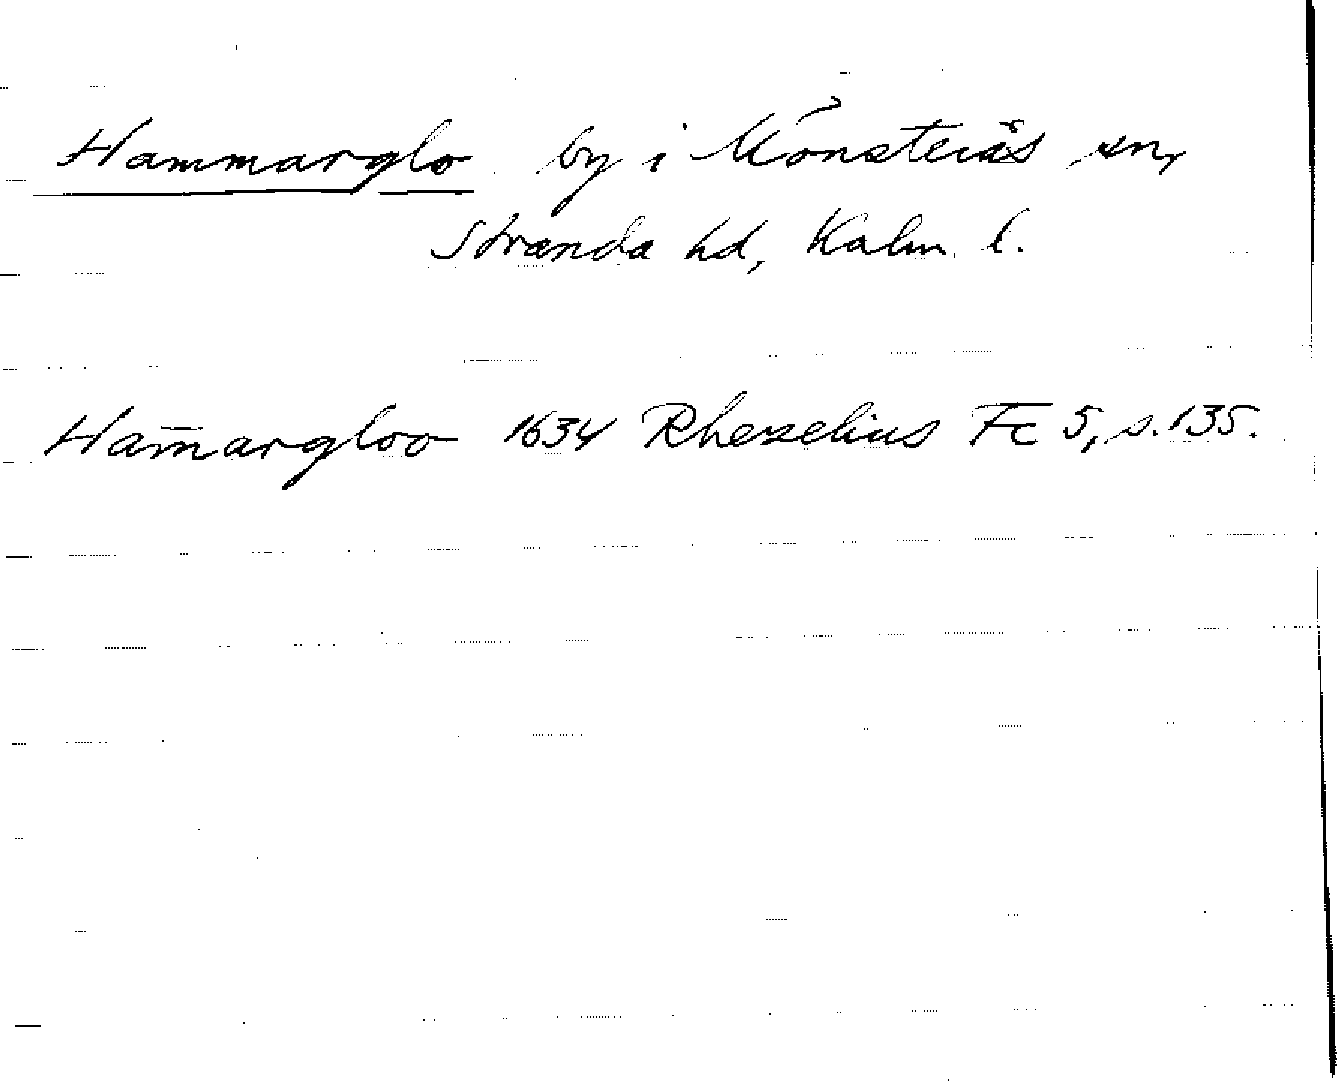 Hammarglo by i Mönsterås sn,
Stranda hd, Kalm. l.
Ham̄argloo 1634 Rhezelius Fc 5, s. 135.